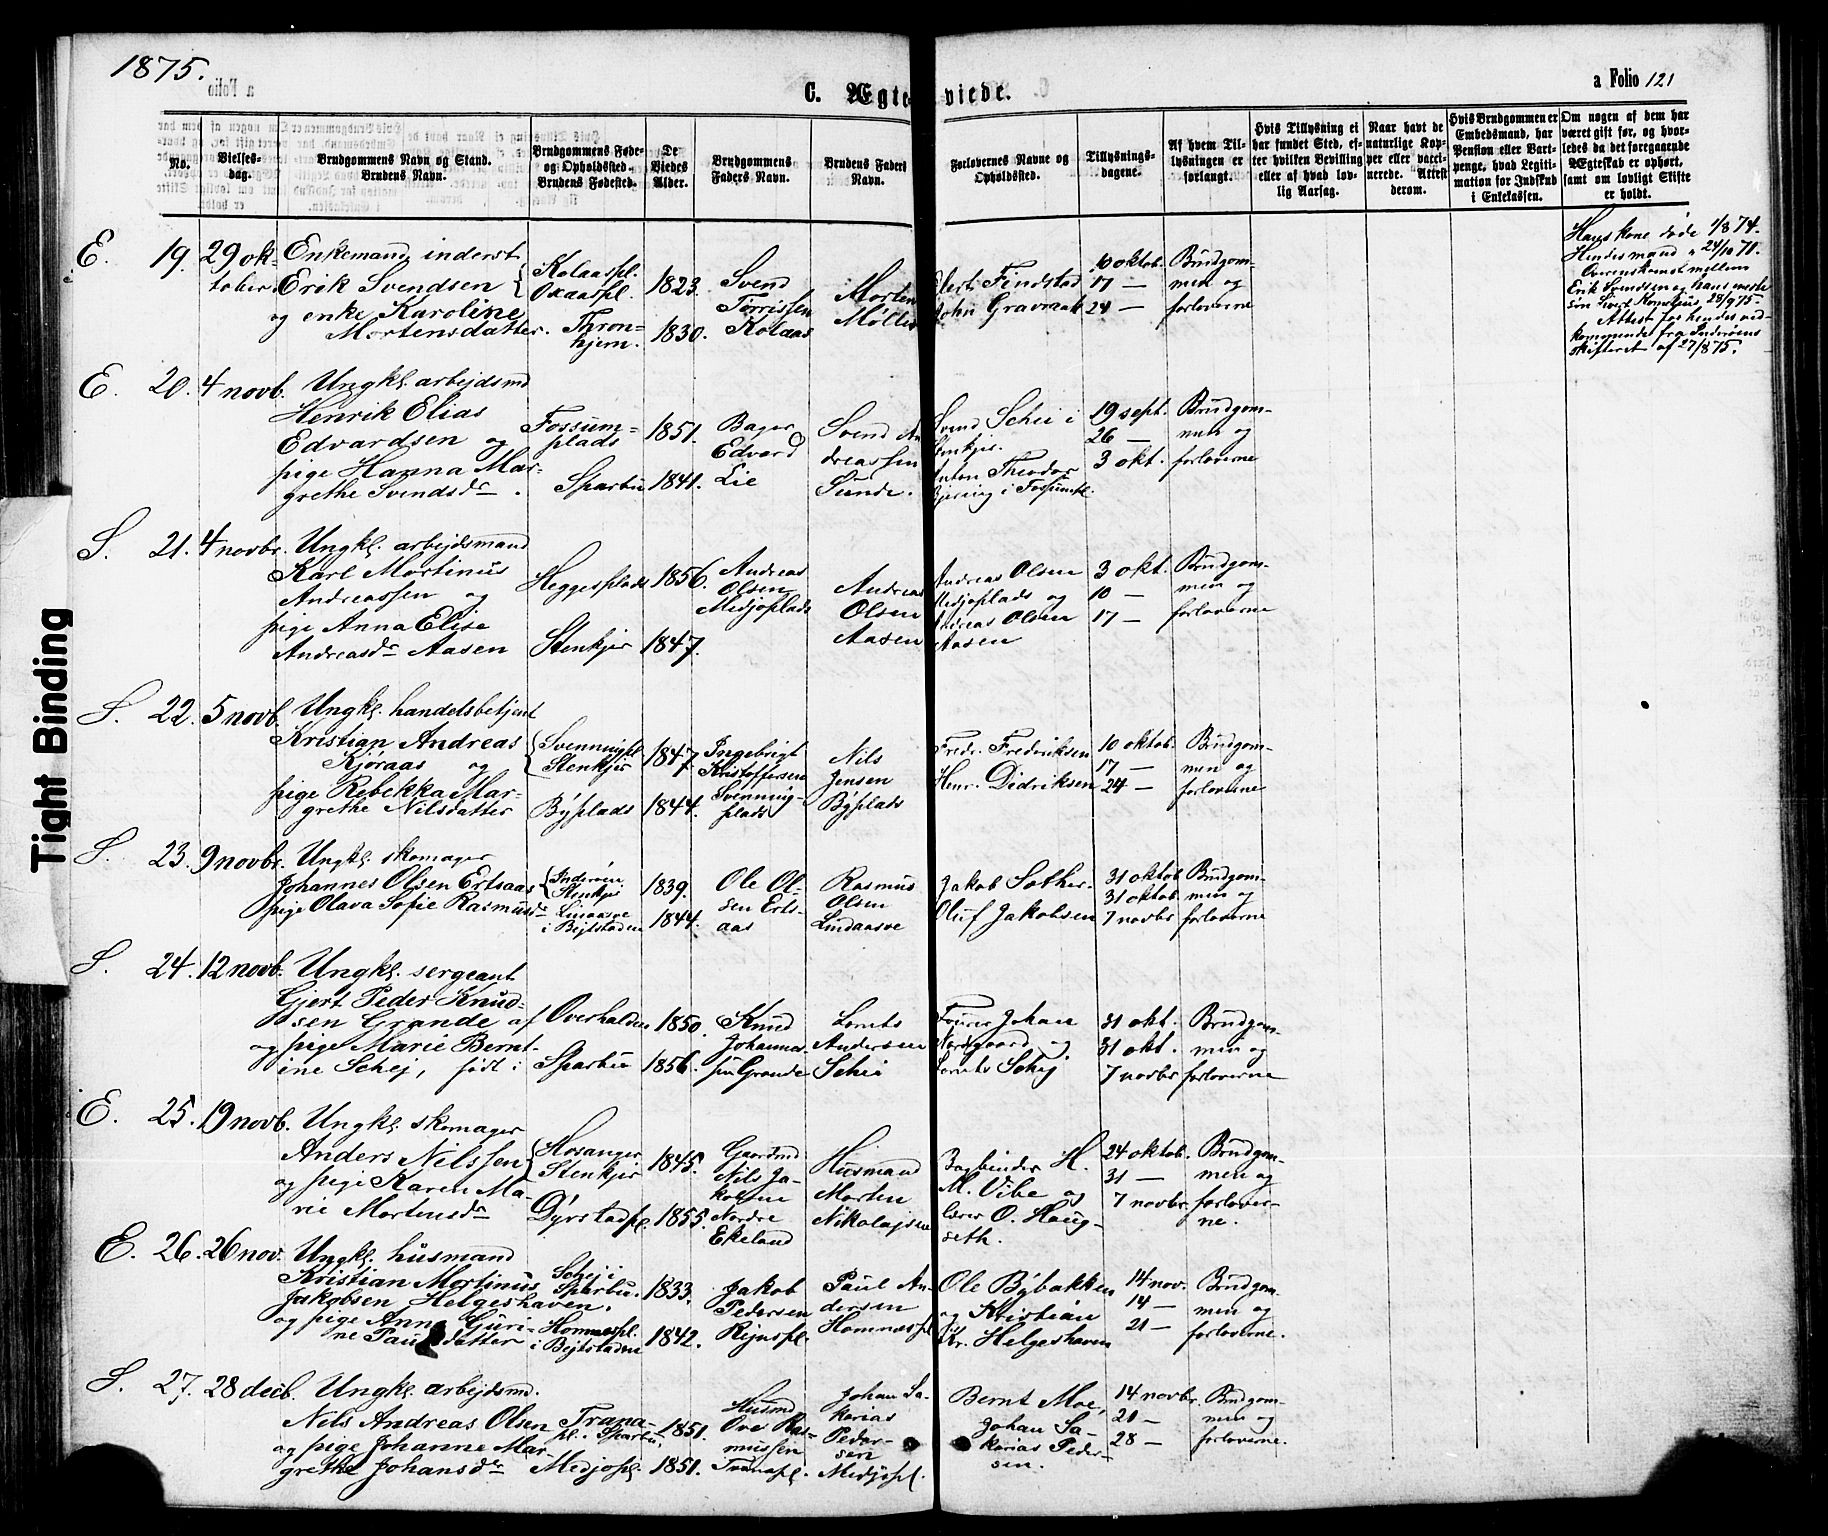 1875.
C. Ægteviede.
a Folio 121
No.
Vielses-
dag.
Brudgommens Navn og Stand.
Brudens Navn.
Brudgommens Føde-
og Opholdssted.
Brudens Fødested.
De
Viedes
Alder.
Brudgommens
Faders Navn.
Brudens Faders
Navn.
Forlovernes Navne og
Opholdssted.
Tillysnings-
dagene.
Af hvem Til-
lysningen er
forlangt.
Hvis Tillysning ei
har fundet Sted, ef-
ter hvilken Bevilling
eller af hvad lov-
lig Aarsag.
Naar havt de
naturlige Kop-
per eller vacci-
nerede. Attest
derom.
Hvis Brudgommen er
Embedsmand, har
Pension eller Vart-
penge, hvad Legiti-
mation for Indskud
i Enkekassen.
Om nogen af dem har
været gift før, og hvor-
ledes da det foregaaende
Ægteskab er ophørt,
samt om lovligt Skifte
er holdt.
E. 19. 29 ok-
tober.
Enkemand inderst
Erik Svendsen
og enke Karoline
Mortensdatter.
Kolaaspl.
Oxaaspl.
Thron-
hjem.
1823.
1830.
Svend
Torrissen
Kolaas
Morten
Møller
Findstad
John Gravraak
10 oktob.
17 —
24 —
Brudgom-
men og
forloverne
Hans kone døde 1/8 74.
Hendes mand " 24/10 71.
Overenskomst mellem
Erik Svendsen og hans
søn Sivert 28/9 75.
Attest for hendes ved-
kommende fra Inderøens
skifteret af 27/8 75.
E. 20. 4 novb.
Ungkl. arbejdsmd
Henrik Elias
Edvardsen og
pige Hanna Mar-
grethe Svendsdr.
Fossum-
plads
Sparbu
1851.
1841.
Bager
Edvard
Lie
Svend An
dreassen
Sunde.
Svend Schei i
Stenkjer.
Anton Theodor
i Fossumpl.
19 sept.
26 —
3 okt.
Brudgom-
men og
forloverne
S. 21. 4 novbr.
Ungkl. arbejdsmand
Karl Martinus
Andreassen og
pige Anna Elise
Andreasdr Aasen
Heggesplads
Stenkjer
1856.
1847.
Andreas
Olsen
Medjoplads
Andreas
Olsen
Aasen
Andreas Olsen
Medjoplads og
Andreas Olsen
Aasen
3 okt.
10 —
17 —
Brudgom-
men og
forloverne
S. 22. 5 novb.
Ungkl. handelsbetjent
Kristian Andreas
Kjøraas og
pige Rebekka Mar-
grethe Nilsdatter
Svenningpl.
Stenkjer
Byplads
1847.
1844.
Ingebrigt
Kristoffersen
Svenning-
plads
Nils
Jensen
Byplads
Fredr. Fredriksen
Henr. Didriksen
10 oktob.
17 —
24 —
Brudgom-
men og
forloverne
S. 23. 9 novbr.
Ungkl. skomager
Johannes Olsen Ertsaas
pige Olava Sofie Rasmusdr
Inderøen
Stenkjer
Linaasve
i Bejtstaden
1839.
1844.
Ole Ol-
sen Erts-
aas
Rasmus
Olsen
Lindaasve
Jakob Sother
Oluf Jakobsen
31 oktob
31 oktob
7 novbr
Brudgom-
men og
forloverne
S. 24. 12 novb.
Ungkl. sergeant
Gjert Peder Knud-
sen Grande af
og pige Marie Bernt-
ine Schej, født i
Overhalden
Sparbu
1850.
1856.
Knud
Johannes-
sen Grande
Lornts
Andersen
Schei
Fourer Johan
Nordgaard og
Lornts Schej
31 okt.
31 okt.
7 novbr
Brudgom-
men og
forloverne
E. 25. 19 novb.
Ungkl. skomager
Anders Nilssen
og pige Karen Ma-
rie Mortensdr
Hosanger
Stenkjer
Dyrstadpl.
1845.
1855.
Gaardmd
Nils Ja-
kobsen
Nordre
Ekeland
Husmand
Morten
Nikolajsen
Bogbinder H.
M. Vibe og
lærer O. Haug-
seth.
24 oktob.
31 —
7 novbr
Brudgom-
men og
forlover-
ne.
E. 26. 26 nov.
Ungkl. husmand
Kristian Martinus
Jakobsen Helgeshaven.
og pige Anna Guri-
ne Paulsdatter
Schej i
Sparbu.
Homnespl.
i Bejtstaden
1833.
1842.
Jakob
Pedersen
Rejnspl.
Paul An-
dersen
Homnespl
Ole Bybakken
og Kristian
Kr. Helgeshaven
14 nov.
14 —
21 —
Brudgom-
men og
forloverne.
S. 27. 28 decb.
Ungkl. arbejdsmd.
Nils Andreas Olsen
og pige Johanne Mar-
grethe Johansdr
Trana-
pl. i Sparbu.
Medjopl.
1851.
1851.
Husmd
Ove Ras-
mussen
Tranapl.
Johan Sa-
karias
Peder-
sen
Medjopl.
Bernt Moe,
Johan Sa-
karias Peder-
sen.
14 novbr.
21 —
28 —
Brudgom-
men og
forloverne.
Tight Binding